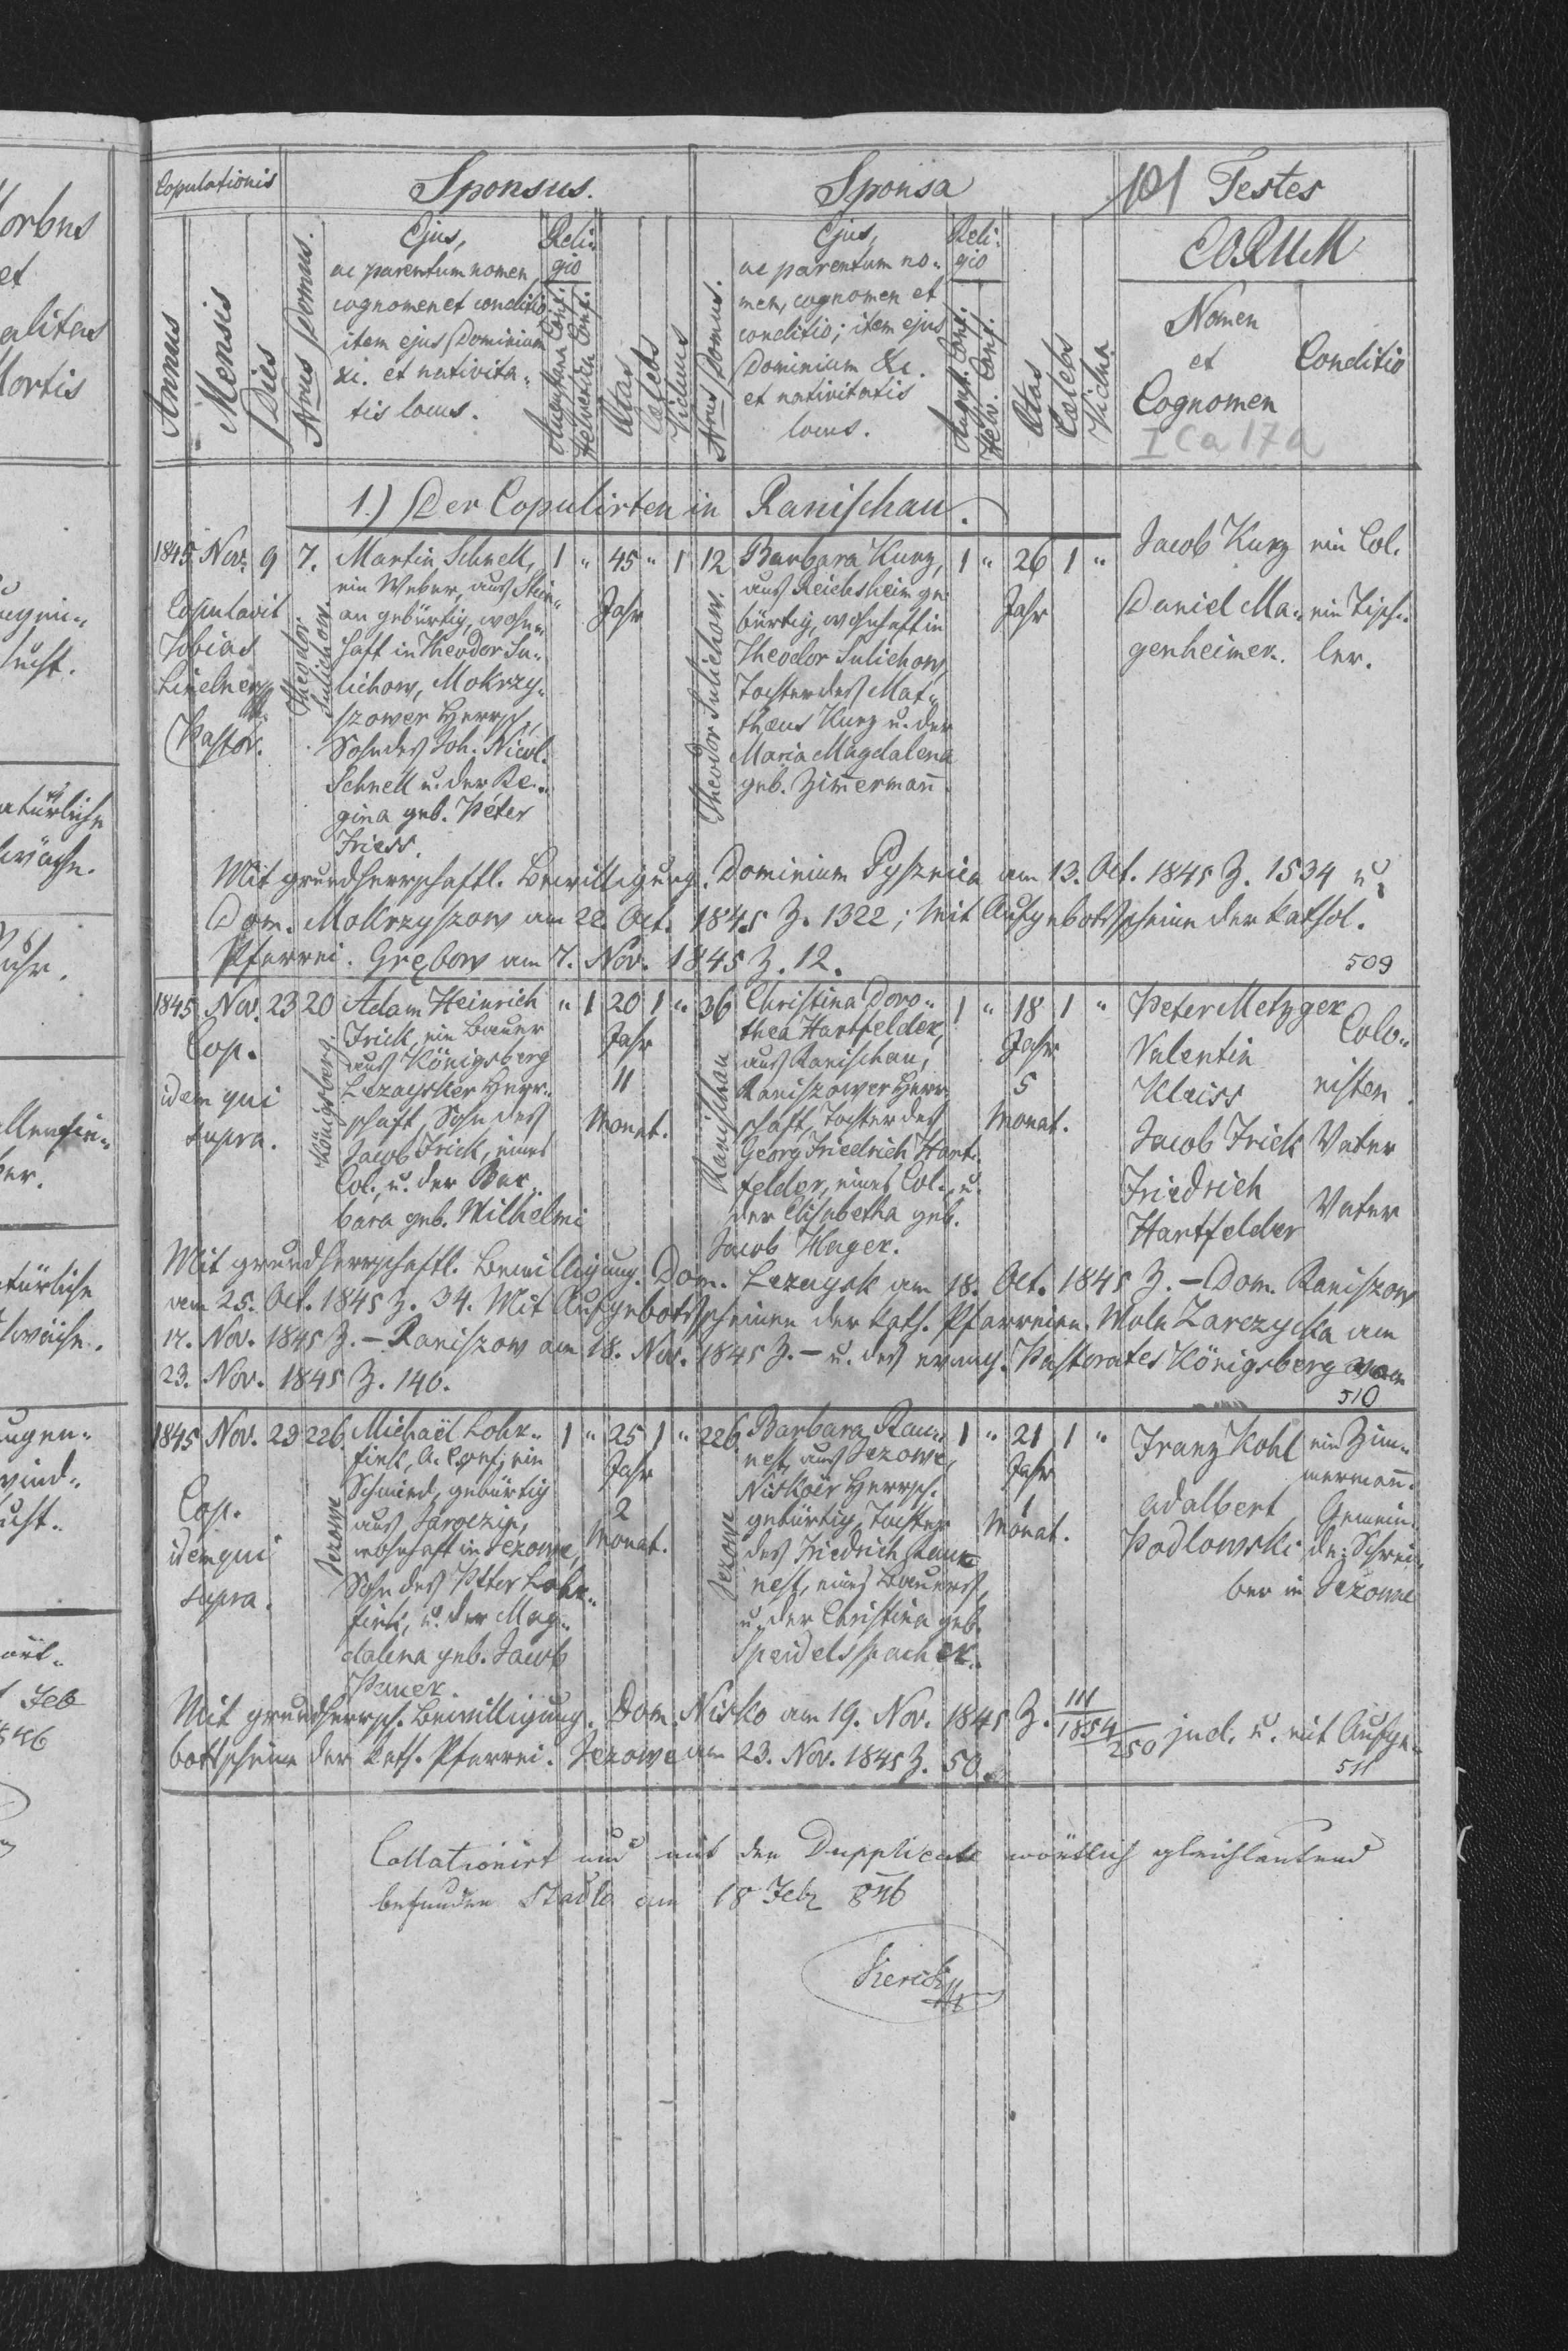 Copulationis
Sponsus.
Sponsa
101 Testes
EORUM
Annus
Mensis
Dies
Nrus Domus.
Ejus,
ac parentum nomen
cognomen et conditio
item ejus Dominium
&c. et nativita-
tis locus.
Reli-
gio
Augustana Conf.
Helvetica Conf.
Ætas
Cœlebs
Viduus
Nrus Domus.
Ejus,
ac parentum no-
men, cognomen et
conditio; item ejus
Dominium &c.
et nativitatis
locus.
Reli-
gio
August. Conf.
Helv. Conf.
Ætas
Cœlebs
Vidua
Nomen
et
Cognomen
Conditio
I Ca 17a
1.) Der Copulirten in Ranischau.
1845 Nov. 9 7.
Copulavit
Tobias
Pastor.
Theodor
Sulichow.
Martin Schnell,
ein Weber, aus Stein-
au gebürtig, wohn-
haft in Theodor Su-
lichow, Mokrzy-
szower Herrsch.,
Sohn des Joh. Nicol.
Schnell u. der Re-
gina geb. Peter
Friess.
1 " 45 " 1
Jahr
12
Theodor Sulichow.
Barbara Kurz,
aus Reichsheim ge-
bürtig, wohnhaft in
Theodor Sulichow,
Tochter des Mat-
thæus Kurz u. der
Maria Magdalena
geb. Zimmermann.
1 " 26 1 "
Jahr
Jacob Kurz ein Col.
Daniel Ma- ein Tisch-
genheimer. ler.
Mit grundherrschaftl. Bewilligung. Dominium Pysznica am 13. Oct. 1845 Z. 1534 u.
Dom. Mokrzyszow am 22. Oct. 1845 Z. 1322; Mit Aufgebotsscheine der kathol.
Pfarrei. Grębow am 7. Nov. 1845 Z. 12.
509
1845 Nov. 23 20
Cop.
idem qui
supra.
Königsberg.
Adam Heinrich
Frick, ein Bauer
aus Königsberg
Lezaysker Herr-
schaft, Sohn des
Jacob Frick, eines
Col. u. der Bar-
bara geb. Wilhelmi
" 1 20 1 "
Jahr
11
Monat.
36
Ranischau
Christina Doro-
thea Hartfelder,
aus Ranischau,
Raniszower Herr-
schaft, Tochter des
Georg Friedrich Hart-
felder, eines Col. u.
der Elisabetha geb.
Jacob Hager.
1 " 18 1 "
Jahr
5
Monat.
Peter Metzger
Valentin
Kleiss
Colo-
nisten.
Jacob Frick Vater
Friedrich
Hartfelder
Vater
Mit grundherrschaftl. Bewilligung. Dom. Lezaysk am 18. Oct. 1845 Z. – Dom. Raniszow
am 25. Oct. 1845 Z. 34. Mit Aufgebotsscheinen der kath. Pfarreien. Wola Zarczycka am
17. Nov. 1845 Z. – Raniszow am 18. Nov. 1845 Z. – u. des evang. Pastorates Königsberg vom
23. Nov. 1845 Z. 140.
510
1845 Nov. 23 226.
Cop.
idem qui
supra.
Jezowe
Michaël Lohr-
fink, A. Conf; ein
Schmied, gebürtig
aus
wohnhaft in Jezowe,
Sohn des Peter Lohr-
fink, u. der Mag-
dalena geb. Jacob
1 " 25 1 "
Jahr
2
Monat.
226.
Jezowe
Barbara Rau-
nest, aus Jezowe,
Niskoer Herrsch.
gebürtig, Tochter
des Friedrich Rau-
nest, eines Bauers,
u. der Christina geb.
Speidelspacher.
1 " 21 1 "
Jahr
1
Monat.
Franz Kohl ein Zim-
mermann.
Adalbert Gemein-
Podlowski de-Schrei-
ber in Jezowe
Mit grundherrsch. Bewilligung. Dom. Nisko am 19. Nov. 1845 Z. 111/1854/250 jud. u. mit Aufge-
botsscheine der kath. Pfarrei. Jezowe am 23. Nov. 1845 Z. 50.
511
Collationirt und mit den Dupplicate wörtlich gleichlautend
befunden Stadlo am 18 Feb 846